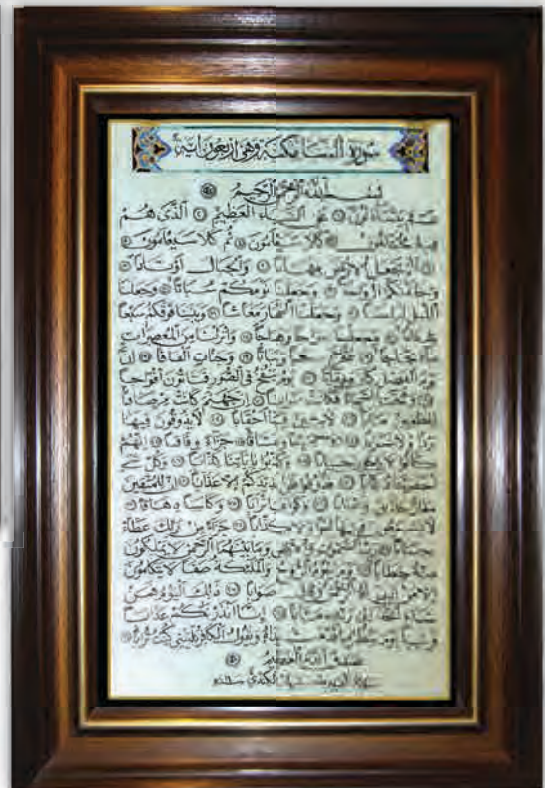 سورة النبأ مكية وهي اربعون اية
بسم الله الرحمن الرحيم
عم يتساءلون عن النبإ العظيم الذي هم
فيه مختلفون كلا سيعلمون ثم كلا سيعلمون
ألم نجعل الأرض مهادا والجبال أوتادا
وخلقناكم أزواجا وجعلنا نومكم سباتا وجعلنا
الليل لباسا وجعلنا النهار معاشا وبنينا فوقكم سبعا
شدادا وجعلنا سراجا وهاجا وأنزلنا من المعصرات
ماء ثجاجا لنخرج به حبا ونباتا وجنات ألفافا إن
يوم الفصل كان ميقاتا يوم ينفخ في الصور فتأتون أفواجا
وفتحت السماء فكانت سرابا إن جهنم كانت مرصادا
للطاغين مآبا لابثين فيها أحقابا لا يذوقون فيها
بردا ولا شرابا إلا حميما وغساقا جزاء وفاقا إنهم
كانوا لا يرجون حسابا وكذبوا بآياتنا كذابا وكل شيء
أحصيناه كتابا فذوقوا فلن نزيدكم إلا عذابا إن للمتقين
مفازا حدائق وأعنابا وكواعب أترابا وكأسا دهاقا
لا يسمعون فيها لغوا ولا كذابا جزاء من ربك عطاء
حسابا رب السموات والأرض وما بينهما الرحمن لا يملكون
منه خطابا يوم يقوم الروح والملئكة صفا لا يتكلمون
إلا من أذن له الرحمن وقال صوابا ذلك اليوم الحق فمن
شاء اتخذ إلى ربه مآبا إنا أنذرناكم عذابا
قريبا يوم ينظر المرء ما قدمت يداه ويقول الكافر يليتني كنت ترابا
صدق الله العظيم